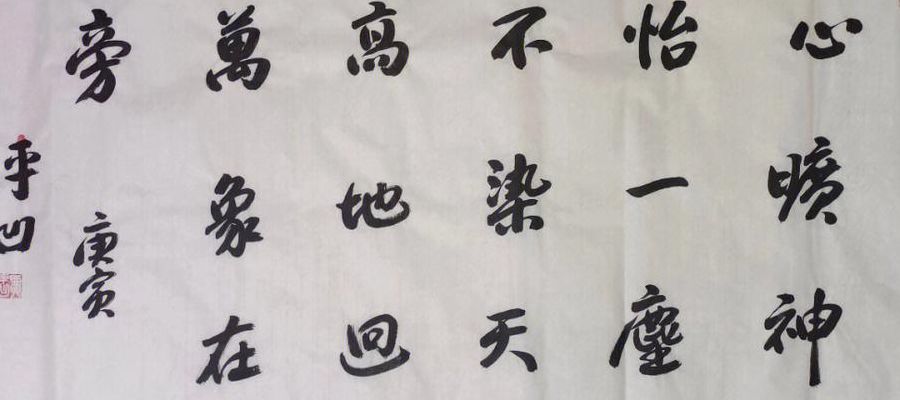 心曠神
怡一塵
不染天
高地迥
萬象在
旁庚寅
平凹